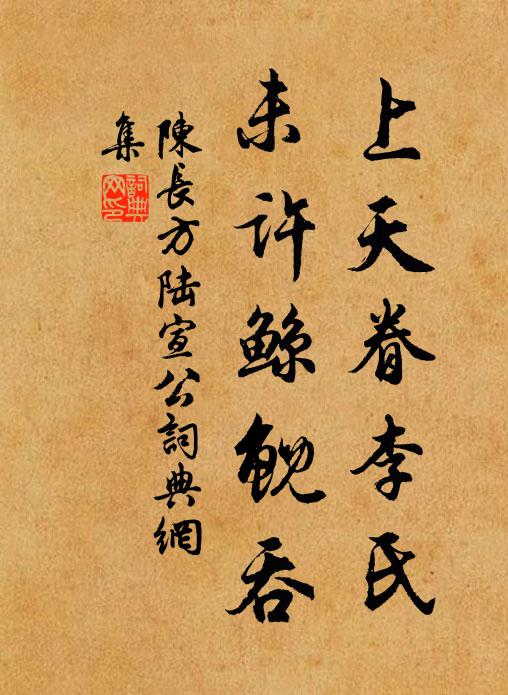 上天眷李氏
未许鲸鲵吞
陳長方陸宣公詞典網
集
詞典
网印